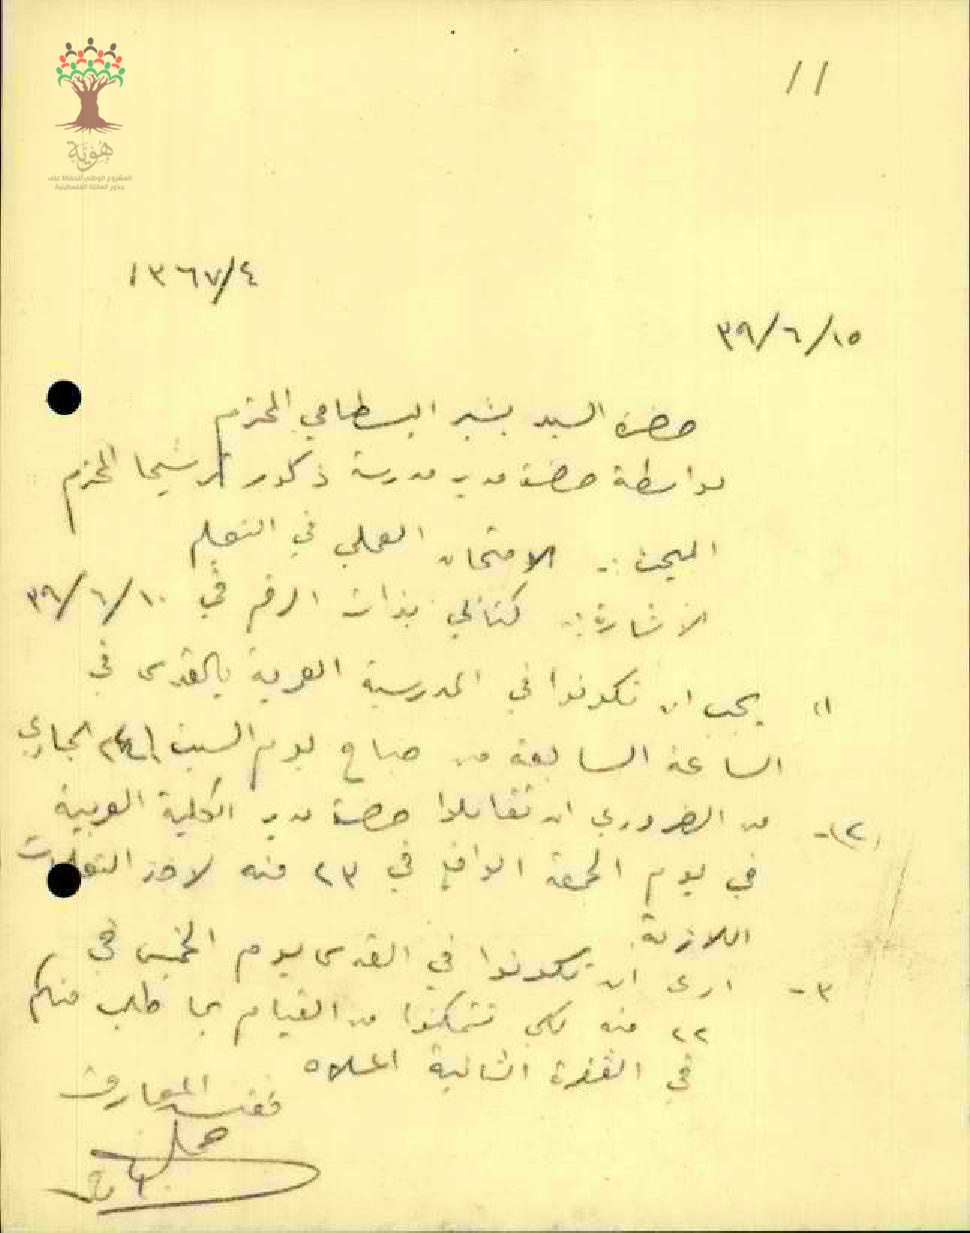 هوية
المشروع الوطني للحفاظ على
جذور العائلة الفلسطينية
١١
١٣٦٧/٤
٣٩/٦/١٥
حضرة السيد بشير البسطامي المحترم
بواسطة حضرة مدير مدرسة ذكور ترشيحا المحترم
المبحث :- الامتحان العملي في التعليم
الاشارة :- كتابي بذات الرقم في ٣٩/٦/١٠
١) يجب ان تكونوا في المدرسة بالقدس في
الساعة السابعة من صباح يوم السبت ٢٤ الجاري
٢)- من الضروري ان تقابلوا حضرة مدير الكلية العربية
في يوم الجمعة الواقع في ٢٣ منه لاخذ التعليمات
اللازمة.
٣- ارى ان تكونوا في القدس يوم الخميس في
٢٢ منه لكي تتمكنوا من القيام بما طلب منكم
في الفقرة الثانية اعلاه
مفتش المعارف